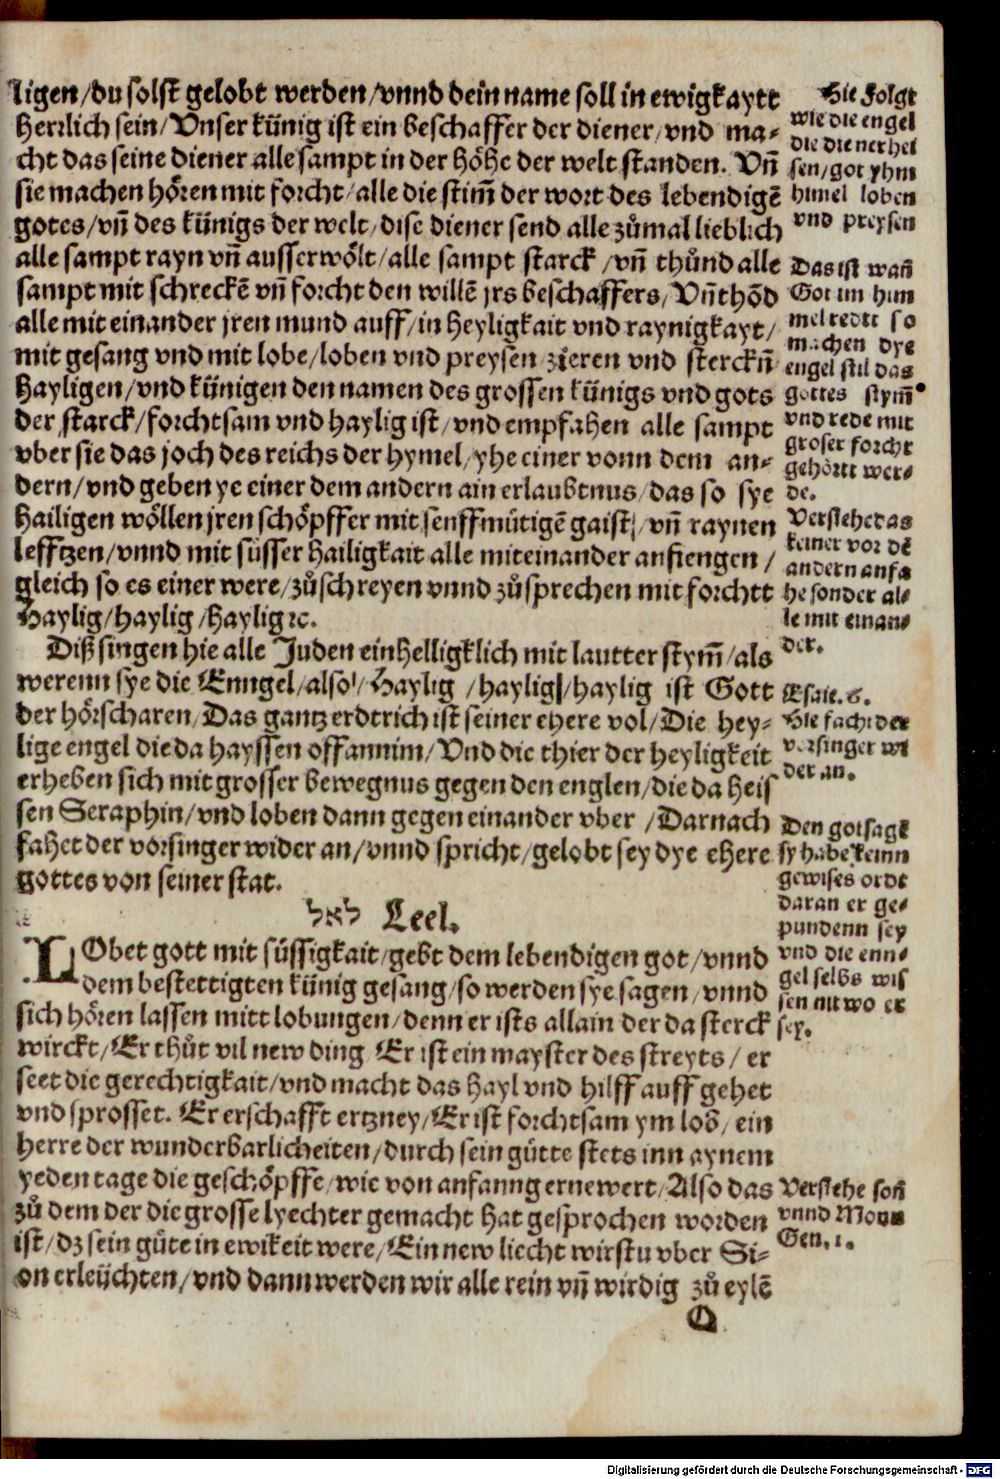 ligen/du solst gelobt werden/vnnd dein name soll in ewigkaytt
herrlich sein/Vnser künig ist ein beschaffer der diener/vnd ma-
cht das seine diener alle sampt in der höhe der welt standen. Vñ
sie machen hören mit forcht/alle die stim̃ der wort des lebendigẽ
gotes/vñ des künigs der welt/dise diener send alle zůmal lieblich
alle sampt rayn vñ ausserwölt/alle sampt starck/vñ thůnd alle
sampt mit schreckẽ vñ forcht den willẽ jrs beschaffers/Vñ thõd
alle mit einander jren mund auff/in heyligkait vnd raynigkayt/
mit gesang vnd mit lobe/loben vnd preysen zieren vnd sterckñ
hayligen/vnd künigen den namen des grossen künigs vnd gots
der starck/forchtsam vnd haylig ist/vnd empfahen alle sampt
vber sie das joch des reichs der hymel/yhe einer vonn dem an-
dern/vnd geben ye einer dem andern ain erlaubtnus/das so sye
hailigen wöllen jren schöpffer mit senffmütigẽ gaist/vñ raynen
lefftzen/vnnd mit süsser hailigkait alle miteinander anfiengen/
gleich so es einer were/zůschreyen vnnd zůsprechen mit forchtt
Haylig/haylig/haylig ꝛc.
Diß singen hie alle Juden einhelligklich mit lautter stym̃/als
werenn sye die Enngel/also/Haylig/haylig/haylig ist Gott
der hörscharen/Das gantz erdtrich ist seiner ehere vol/Die hey-
lige engel die da hayssen offannim/Vnd die thier der heyligkeit
erheben sich mit grosser bewegnus gegen den englen/die da heis
sen Seraphin/vnd loben dann gegen einander vber/Darnach
fahet der vorsinger wider an/vnnd spricht/gelobt sey dye ehere
gottes von seiner stat.
לאל Leel.
LObet gott mit süssigkait/gebt dem lebendigen got/vnnd
dem bestettigten künig gesang/so werden sye sagen/vnnd
sich hören lassen mitt lobungen/denn er ists allain der da sterck
wirckt/Er thůt vil new ding Er ist ein mayster des streyts/er
seet die gerechtigkait/vnd macht das hayl vnd hilff auff gehet
vnd sprosset. Er erschafft ertzney/Er ist forchtsam ym lob/ein
herre der wunderbarlicheiten/durch sein gütte stets inn aynem
yeden tage die geschöpffe/wie von anfanng ernewert/Also das
zů dem der die grosse lyechter gemacht hat gesprochen worden
ist/dz sein güte in ewikeit were/Ein new liecht wirstu vber Si-
on erleüchten/vnd dann werden wir alle rein vñ wirdig zů eylẽ
Q
Hie Folgt
wie die engel
die diener hei
sen/got yhm
himel loben
vnd preysen
Das ist wañ
Got im him
mel redtt so
machen dye
engel stil das
gottes stym̃
vnd rede mit
groser forcht
gehörtt wer-
de.
Verstehe das
keiner vor dẽ
andern anfa
he sonder al-
le mit einan-
der.
Esaie. 6.
Hie facht der
vorsinger wi
der an.
Den got sagt
sy habe keinn
gewises ordt
daran er ge-
pundenn sey
vnd die enn-
gel selbs wis
sen nit wo er
sey.
Verstehe soñ
vnnd Mon
Gen. 1.
Digitalisierung gefördert durch die Deutsche Forschungsgemeinschaft - DFG